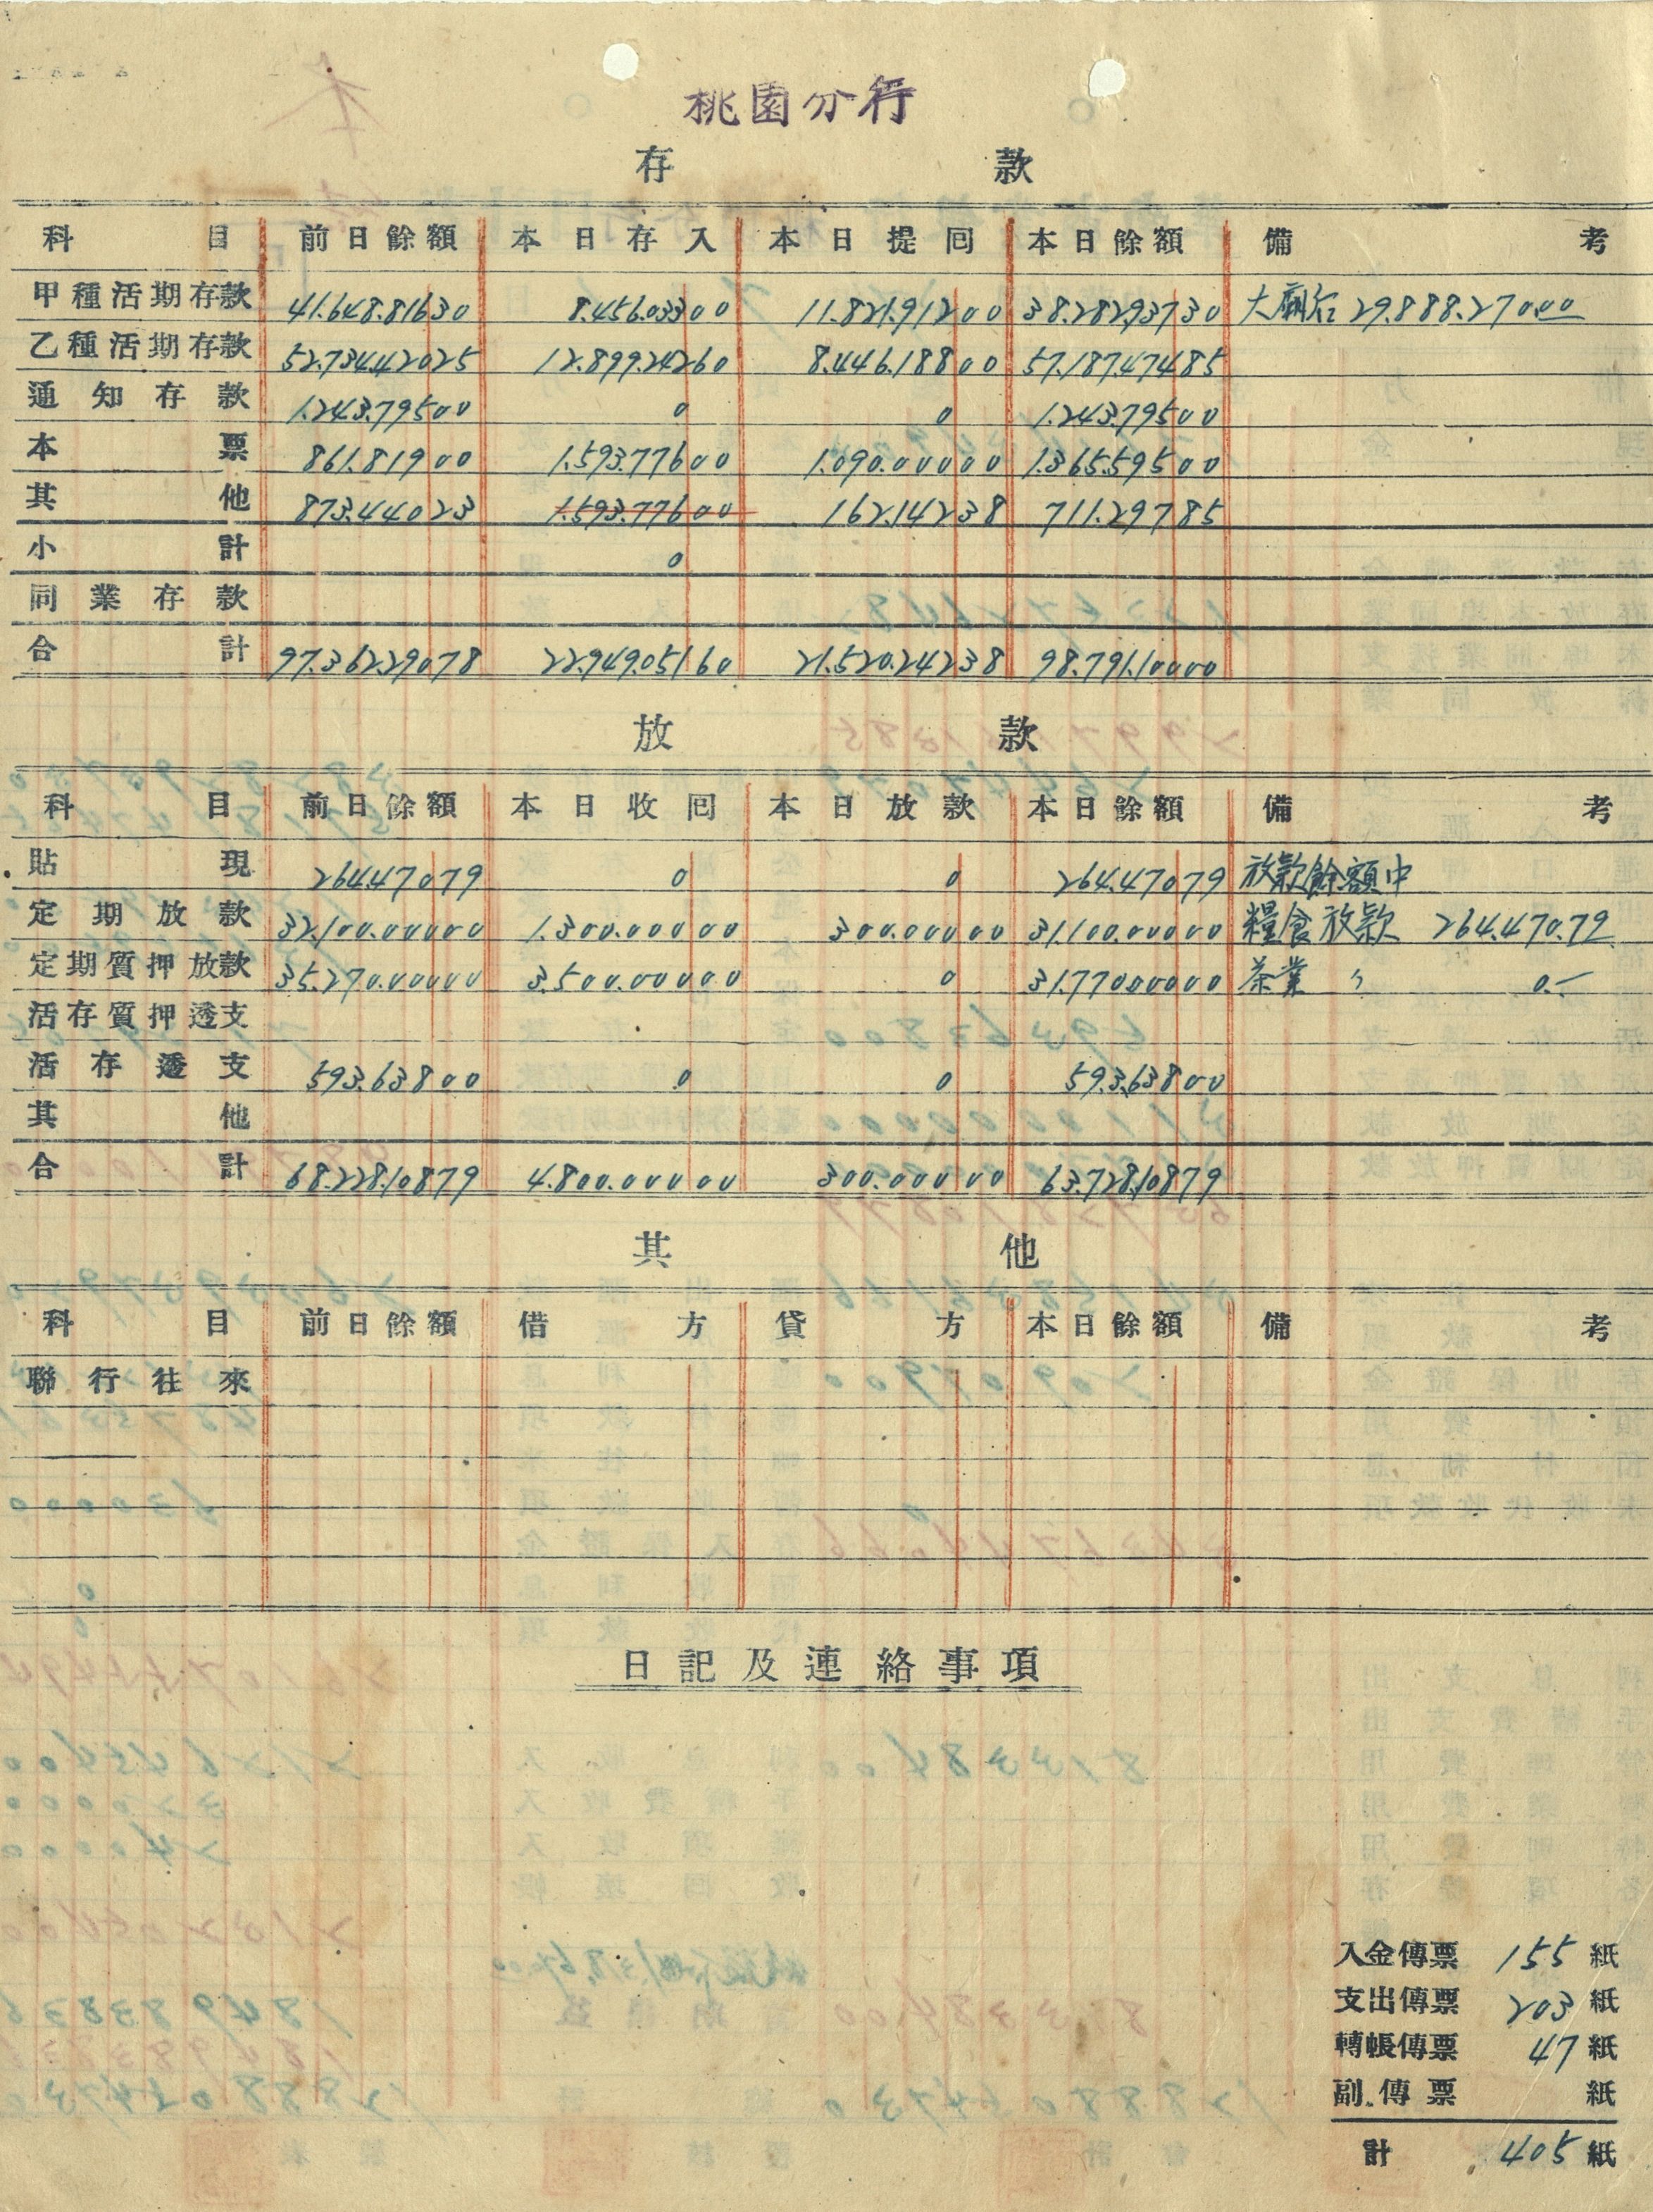 桃園分行
存款
科目 前日餘額 本日存入 本日提囘 本日餘額 備考
甲種活期存款 41.648.816 30 8.456.033 00 11.821.912 00 38.282.937 30 大廟后 29.888.270.00
乙種活期存款 52.734.420 25 12.899.242 60 8.446.188 00 57.187.474 85
通知存款 1.243.795 00 0 0 1.243.795 00
本票 861.819 00 1.593.776 00 1.090.000 00 1.365.595 00
其他 873.440 23 1.593.776 00 162.142 38 711.297 85
小計 0
同業存款
合計 97.362.290 78 22.949.051 60 21.520.242 38 98.791.100 00
放款
科目 前日餘額 本日收囘 本日放款 本日餘額 備考
貼現 264.470 79 0 0 264.470 79 放款餘額中
定期放款 32.100.000 00 1.300.000 00 300.000 00 31.100.000 00 糧食放款 264.470.79
定期質押放款 35.270.000 00 3.500.000 00 0 31.770.000 00 茶業 〃 0.-
活存質押透支
活存透支 593.638 00 0 0 593.638 00
其他
合計 68.228.108 79 4.800.000 00 300.000 00 63.728.108 79
其他
科目 前日餘額 借方 貸方 本日餘額 備考
聯行往來
日記及連絡事項
入金傳票 155 紙
支出傳票 203 紙
轉帳傳票 47 紙
副傳票 紙
計 405 紙